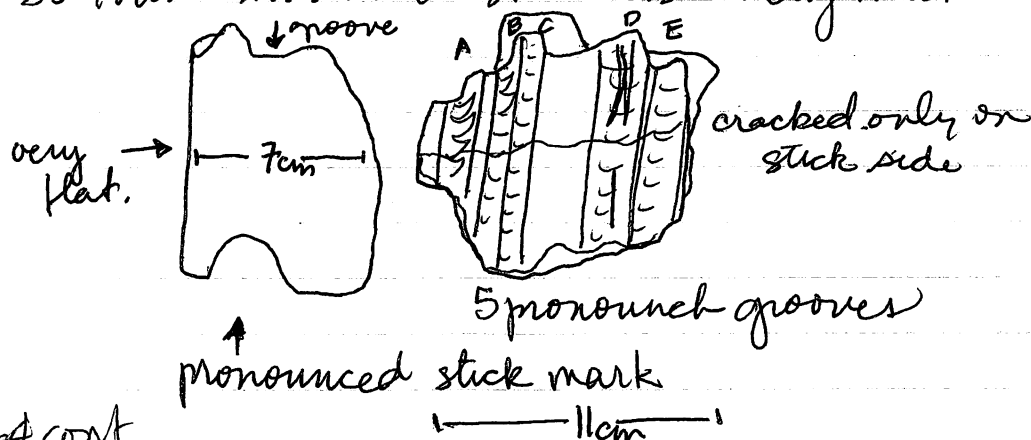 groove
A B C D E
very flat.
7cm
cracked only on stick side
5 pronounch grooves
pronounced stick mark
11cm
cont